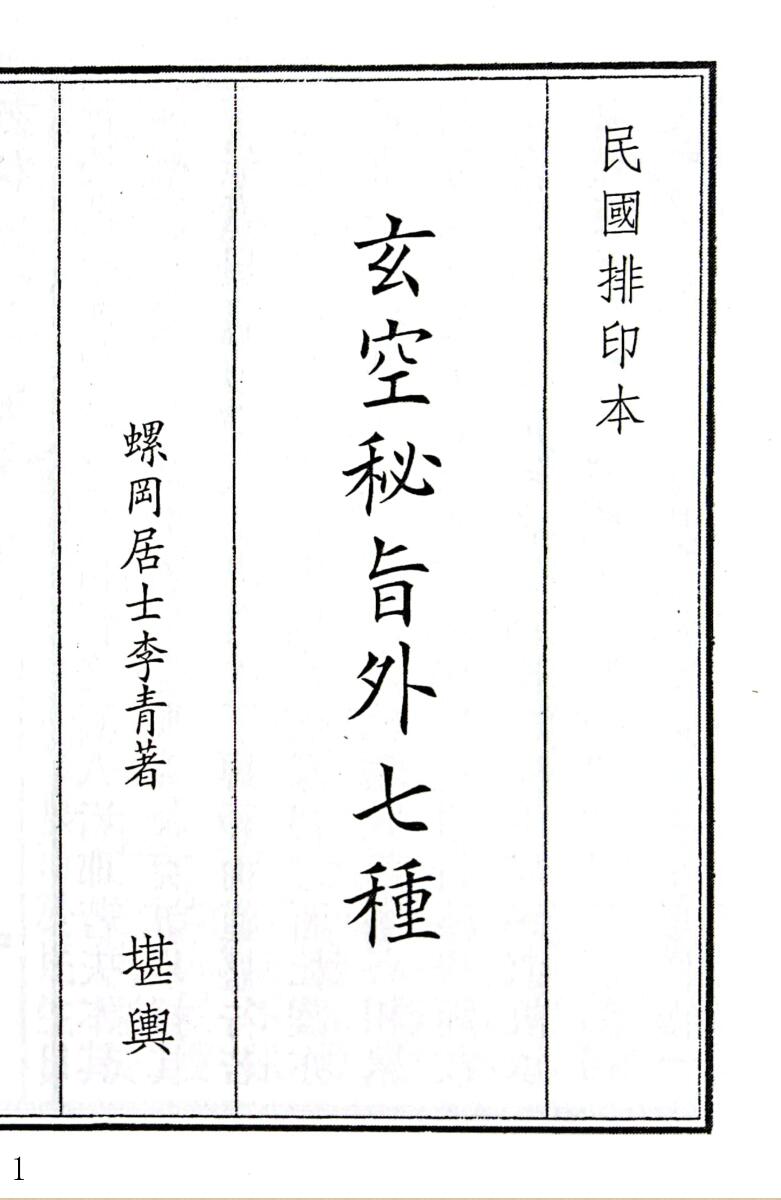 民國排印本
玄空秘旨外七種
螺岡居士李青著　堪輿
1